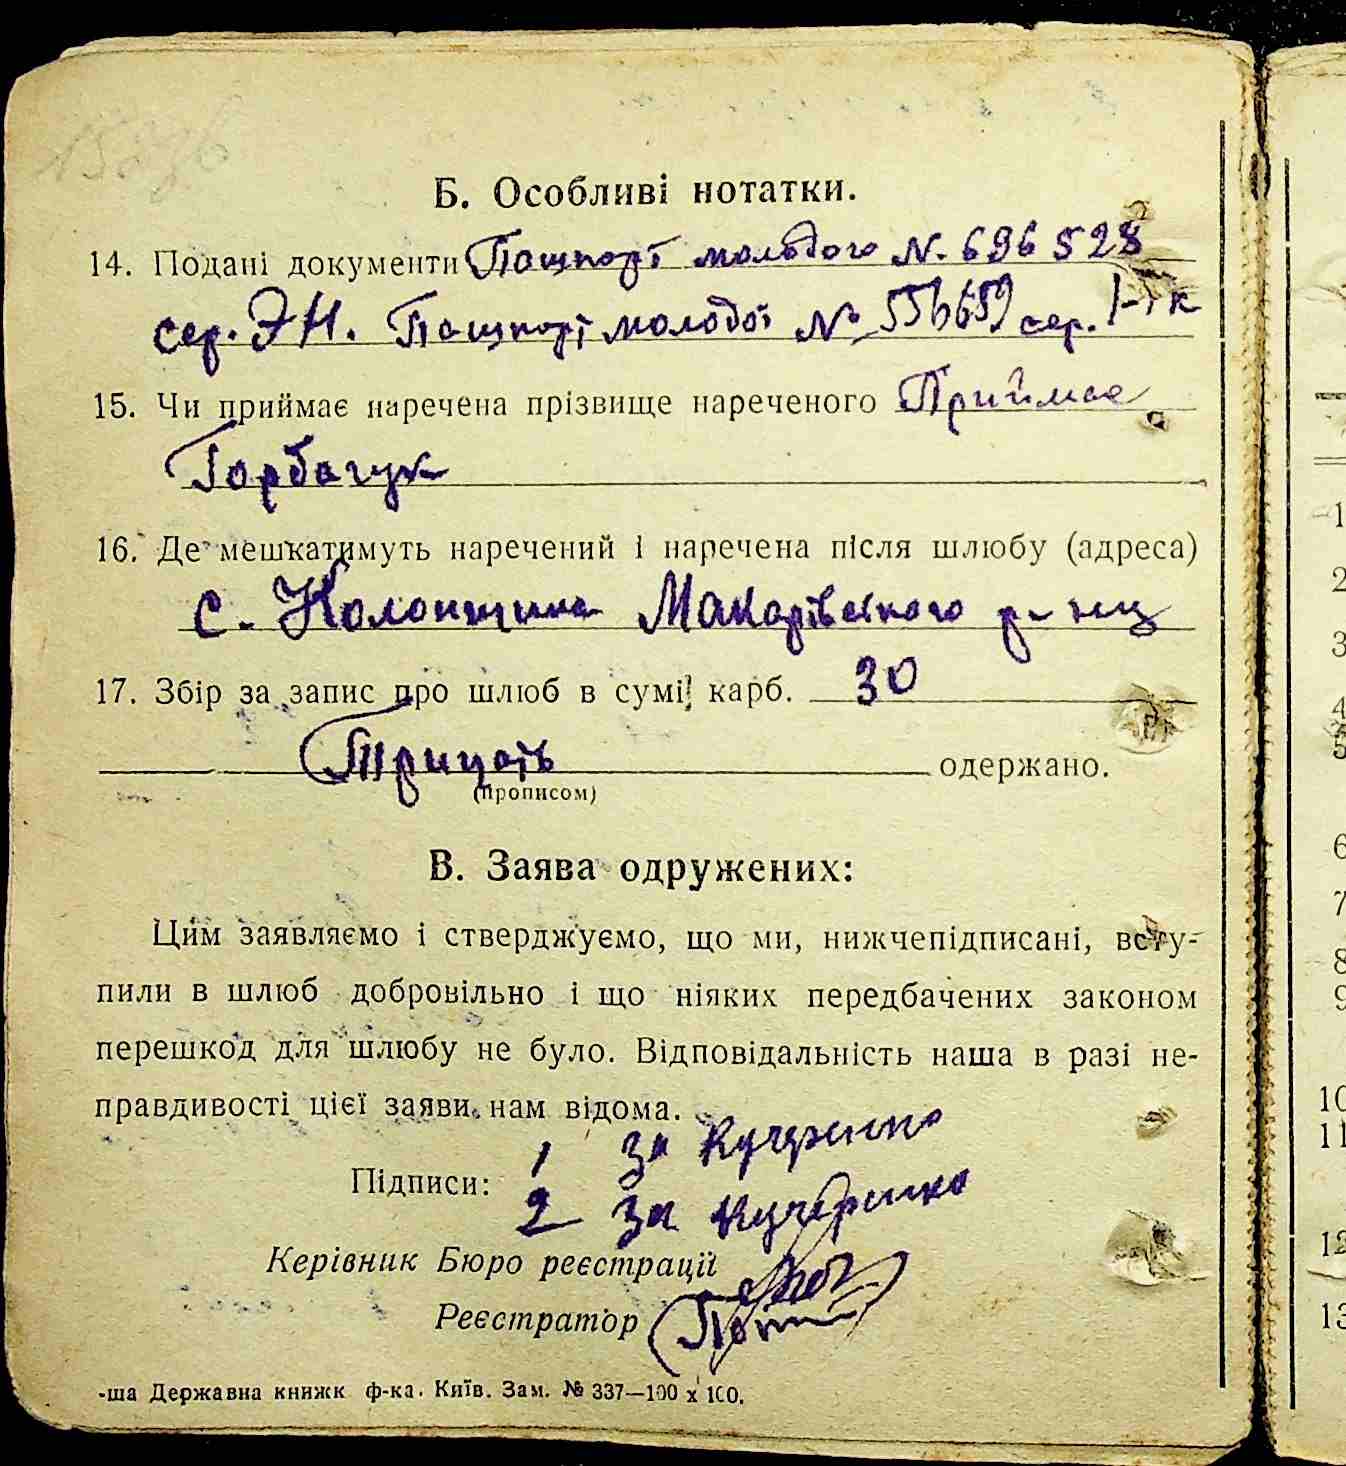 Б. Особливі нотатки.
14. Подані документи Пашпорт молодого N. 696528
сер. ЭН. Пашпорт молодої № 556659 сер.
15. Чи приймає наречена прізвище нареченого Приймає
Горбачук
16. Де мешкатимуть наречений і наречена після шлюбу (адреса)
с. Колонщина Макарівського р-
17. Збір за запис про шлюб в сумі карб. 30
Трицять одержано.
(прописом)
В. Заява одружених:
Цим заявляємо і стверджуємо, що ми, нижчепідписані, всту-
пили в шлюб добровільно і що ніяких передбачених законом
перешкод для шлюбу не було. Відповідальність наша в разі не-
правдивості цієї заяви нам відома.
1 за Кучеренко
Підписи:
2 за Кучеренко
Керівник Бюро реєстрації
Реєстратор
-ша Державна книжк ф-ка. Київ. Зам. № 337—100 x 100.
1
2
3
4
5
6
7
8
9
10
11
12
13